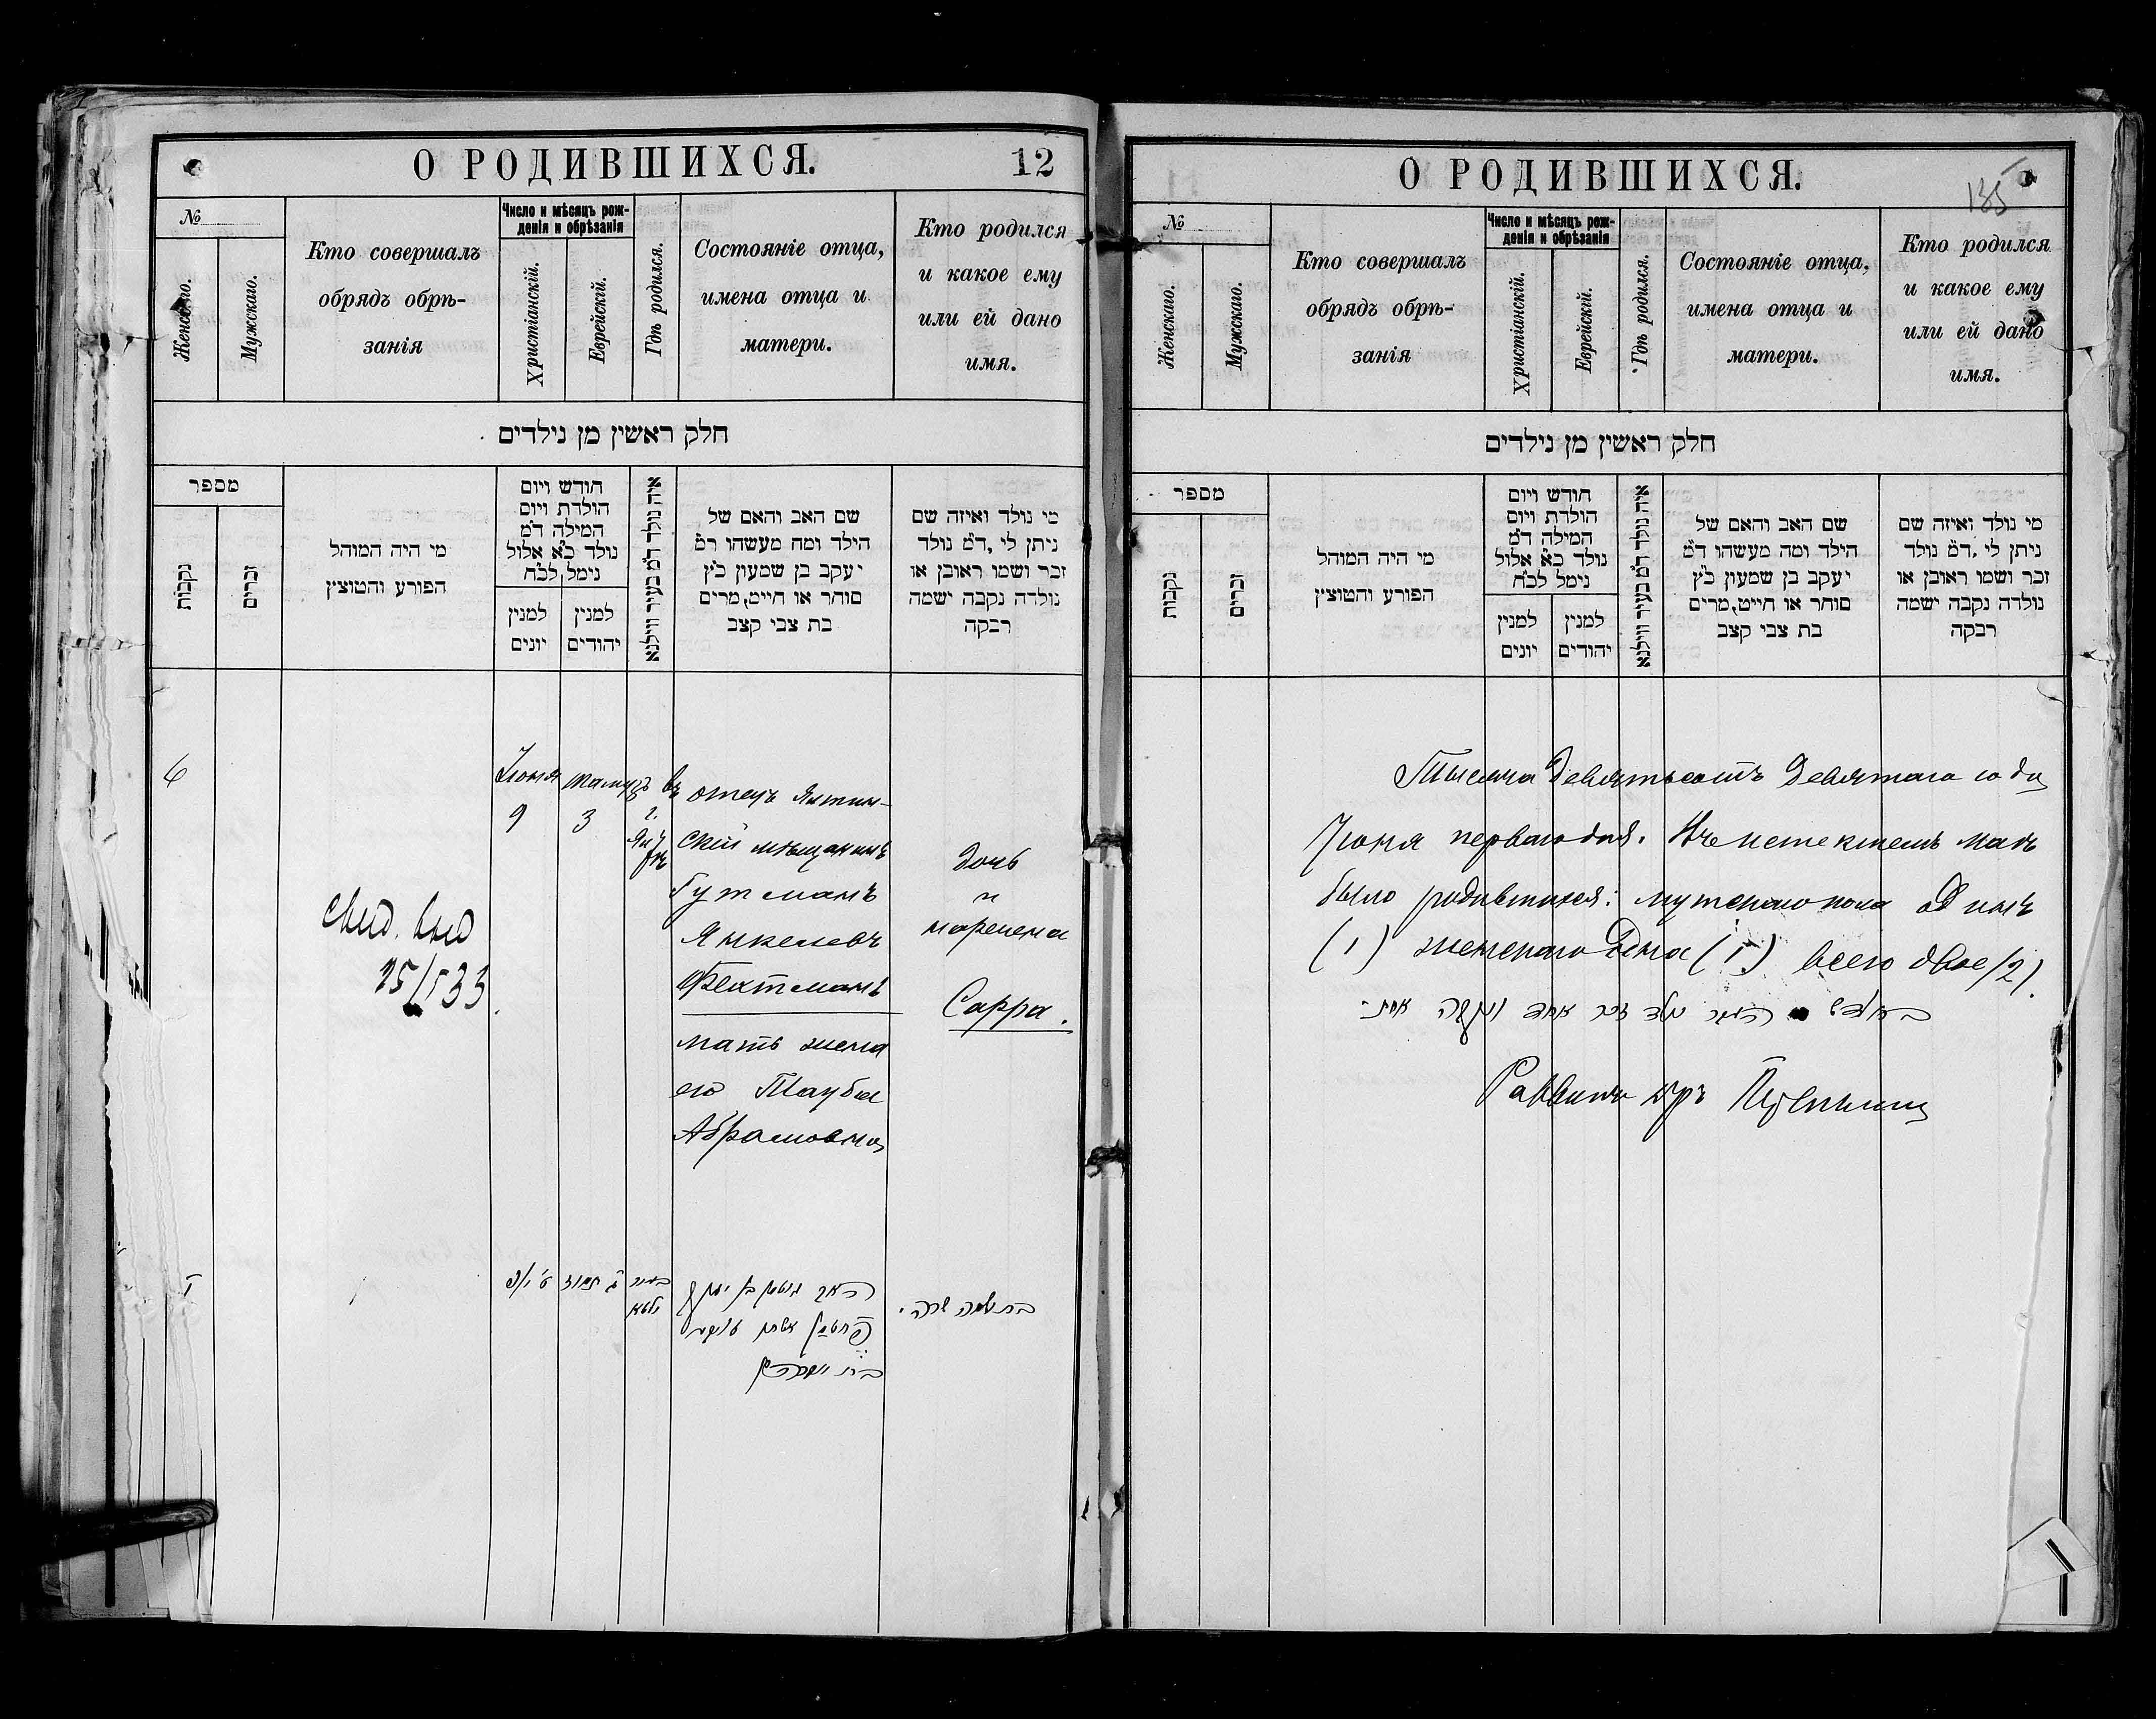 О РОДИВШИХСЯ.
12
№
Женскаго.
Мужскаго.
Кто совершалъ
обрядъ обрѣ-
занія
Число и мѣсяцъ рож-
денія и обрѣзанія
Христіанскій.
Еврейскій.
Гдѣ родился.
Состояніе отца,
имена отца и
матери.
Кто родился
и какое ему
или ей дано
имя.
חלק ראשין מן נילדים
מספר
נקבות
זכרים
מי היה המוהל
הפורע והמוצץ
חודש ויום
הולדת ויום
המילה ד"מ
נולד כ"א אלול
נימל לכ"ח
למנין
יונים
למנין
יהודים
איה נולד ד"מ בעיר ווילנא
שם האב והאם של
הילד ומה מעשהו ד"מ
יעקב בן שמעון כ"ץ
סוחר או חייט, מרים
בת צבי קצב
מי נולד ואיזה שם
ניתן לי, ד"מ נולד
זכר ושמו ראובן או
נולדה נקבה ישמה
רבקה
Іюня
9
Тамузъ
3
въ
отецъ
скій мѣщанинъ
Гутманъ
Янкелевъ
Фехтманъ
мать жена
его Тауба
Абрамовна
дочь
и
наречена
Сарра.
25/533
בת שמה שרה.
О РОДИВШИХСЯ.
135
№
Женскаго.
Мужскаго.
Кто совершалъ
обрядъ обрѣ-
занія
Число и мѣсяцъ рож-
денія и обрѣзанія
Христіанскій.
Еврейскій.
Гдѣ родился.
Состояніе отца,
имена отца и
матери.
Кто родился
и какое ему
или ей дано
имя.
חלק ראשין מן נילדים
מספר
נקבות
זכרים
מי היה המוהל
הפורע והמוצץ
חודש ויום
הולדת ויום
המילה ד"מ
נולד כ"א אלול
נימל לכ"ח
למנין
יונים
למנין
יהודים
איה נולד ד"מ בעיר ווילנא
שם האב והאם של
הילד ומה מעשהו ד"מ
יעקב בן שמעון כ"ץ
סוחר או חייט, מרים
בת צבי קצב
מי נולד ואיזה שם
ניתן לי, ד"מ נולד
זכר ושמו ראובן או
נולדה נקבה ישמה
רבקה
Тысяча девятьсотъ девятаго года
Іюня перваго дня. Въ истекшемъ маѣ
было родившихся: мужскаго пола одинъ
(1) женскаго одна (1) всего двое (2).
נולד זכר אחד ונקבה אחת
Раввинъ